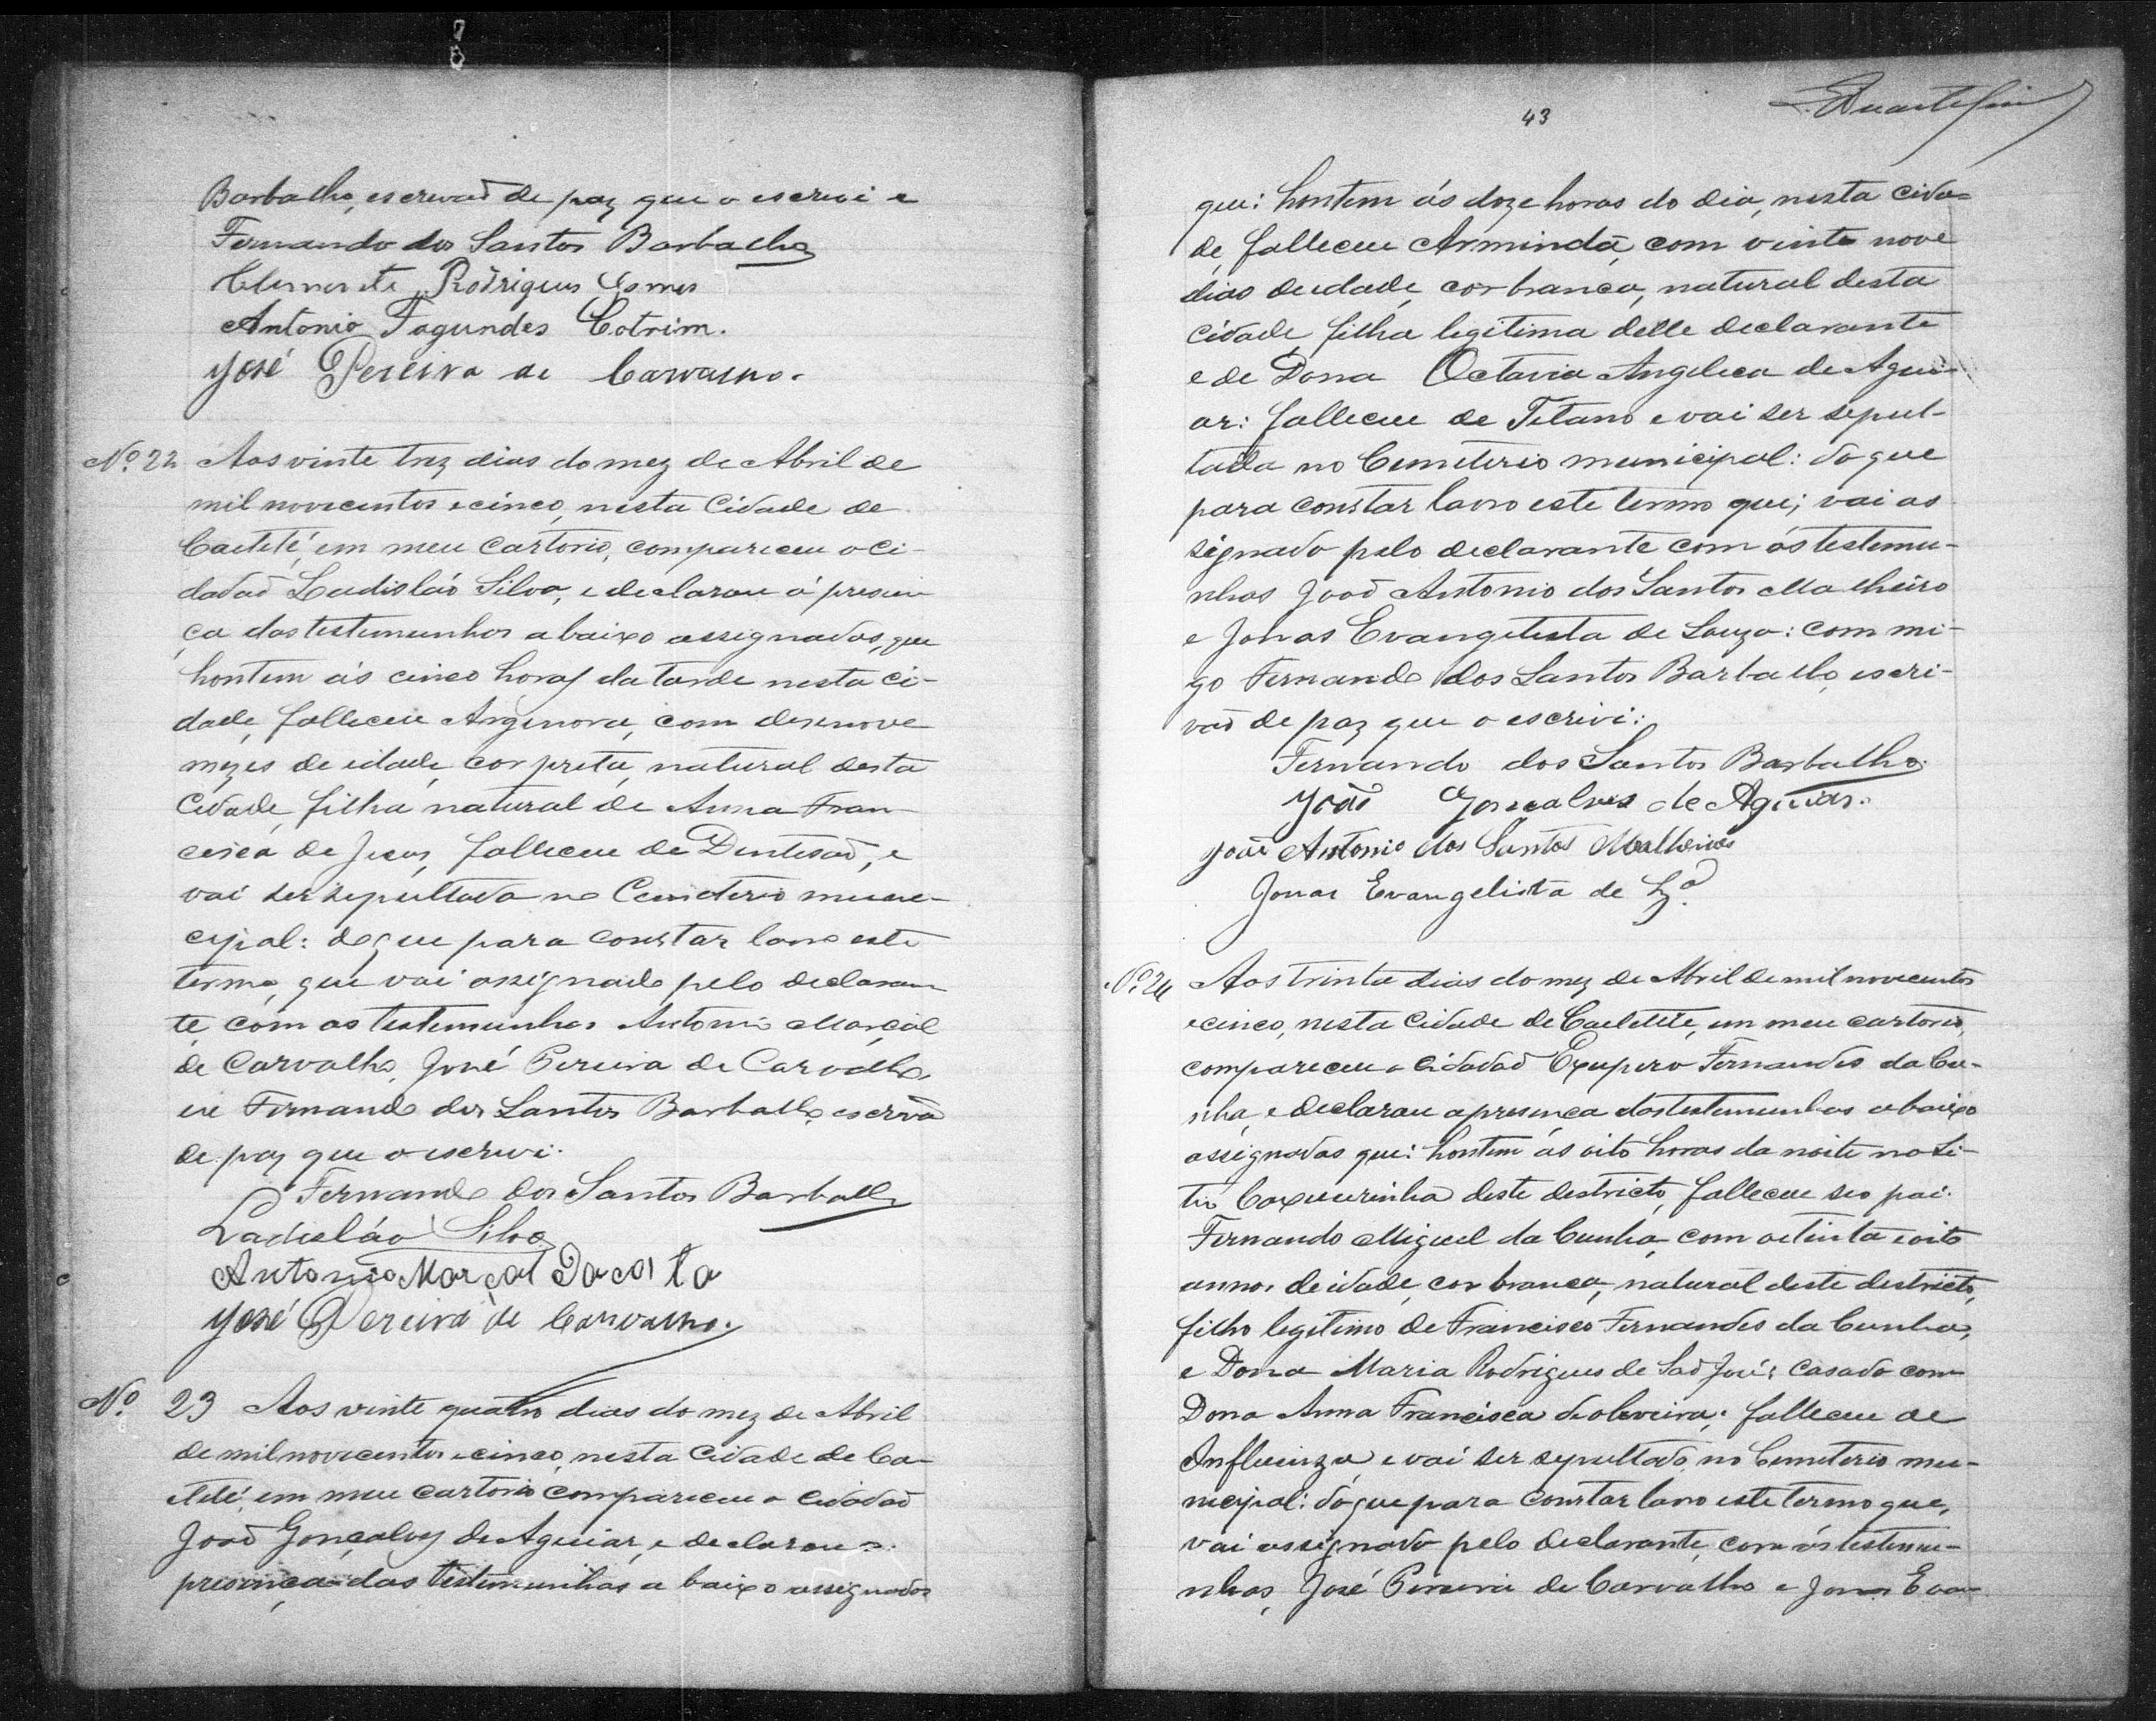 Barbalho, escrivaõ de paz que o escrevi e
Fernando dos Santos Barbalho
Clemente Rodrigues Gomes
Antonio Fagundes Cotrim.
José Pereira de Carvalho.
Nº 22 Aos vinte trez dias do mez de Abril de
mil novecentos e cinco, nesta Cidade de
Caeteté, em meu Cartorio, compareceu o ci-
dadaõ Ladisláo Silva, e declarou á presen
ça das testemunhas abaixo assignadas, que
hontem ás cinco horas da tarde nesta ci-
dade, falleceu Argenora, com desenove
mezes de idade, cor preta, natural desta
Cidade, filha natural de Anna Fran-
cisca de Jesus, falleceu de Dentesaõ, e
vai ser sepultada no Cemiterio mune-
cipal: do que para constar lavro este
termo, que vai assignado pelo declaran
te, com as testemunhas Antonio Marçal
de Carvalho, José Pereira de Carvalho,
eu Fernando dos Santos Barbalho, escrvã
de paz que o escrevi.
Fernando dos Santos Barbalho
Ladisláo Silva
Antonio Marçal Dacosta
José Pereira de Carvalho.
Nº 23 Aos vinte quatro dias do mez de Abril
de mil novecentos e cinco, nesta Cidade de Ca-
eteté, em meu cartorio compareceu o Cidadaõ
Joaõ Gonçalves de Aguiar, e declarou a
presença das testemunhas a baixo assignadas
43
que: hontem ás doze horas do dia, nesta cida-
de, falleceu Arminda, com vinte nove
dias de idade, cor branca, natural desta
cidade, filha legitima delle declarante
e de Dona Octavia Angelica de Agui-
ar: falleceu de Tetano e vai ser sepul-
tada no Cemiterio municipal: do que
para constar lavro este termo que; vai as
signado pelo declarante com ás testemu-
nhas Joaõ Antonio dos Santos Malheiro
e Jonas Evangelista de Souza: com mi-
go Fernando dos Santos Barbalho, escri-
vaõ de paz que o escrivi:
Fernando dos Santos Barbalho.
João Gonçalves de Aguiar.
João Antonio dos Santos Malheiros
Jonas Evangelista de Sza.
Nº 24 Aos trinta dias do mez de Abril de mil novecentos
e cinco, nesta Cidade de Caeteté, em meu cartorio,
compareceu o Cidadaõ Exupero Fernandes da Cu-
nha, e declarou a presença das testemunhas abaixo
assignadas que: hontem ás oito horas da noite no Si-
tio Caxoeirinha deste destricto, falleceu seo pai.
Fernando Miguel da Cunha, com oitenta e oito
annos de idade, cor branca, natural deste destricto,
filho legitimo de Francisco Fernandes da Cunha,
e Dona Maria Rodrigues de Saõ José; Casado com
Dona Anna Francisca de oliveira; falleceu de
Influenza, e vai ser sepultado no Cemiterio mu-
nicipal: do que para constar lavro este termo que,
vai assignado pelo declarante, com ás testemu-
nhas, José Pereira de Carvalho e Jonas Evan